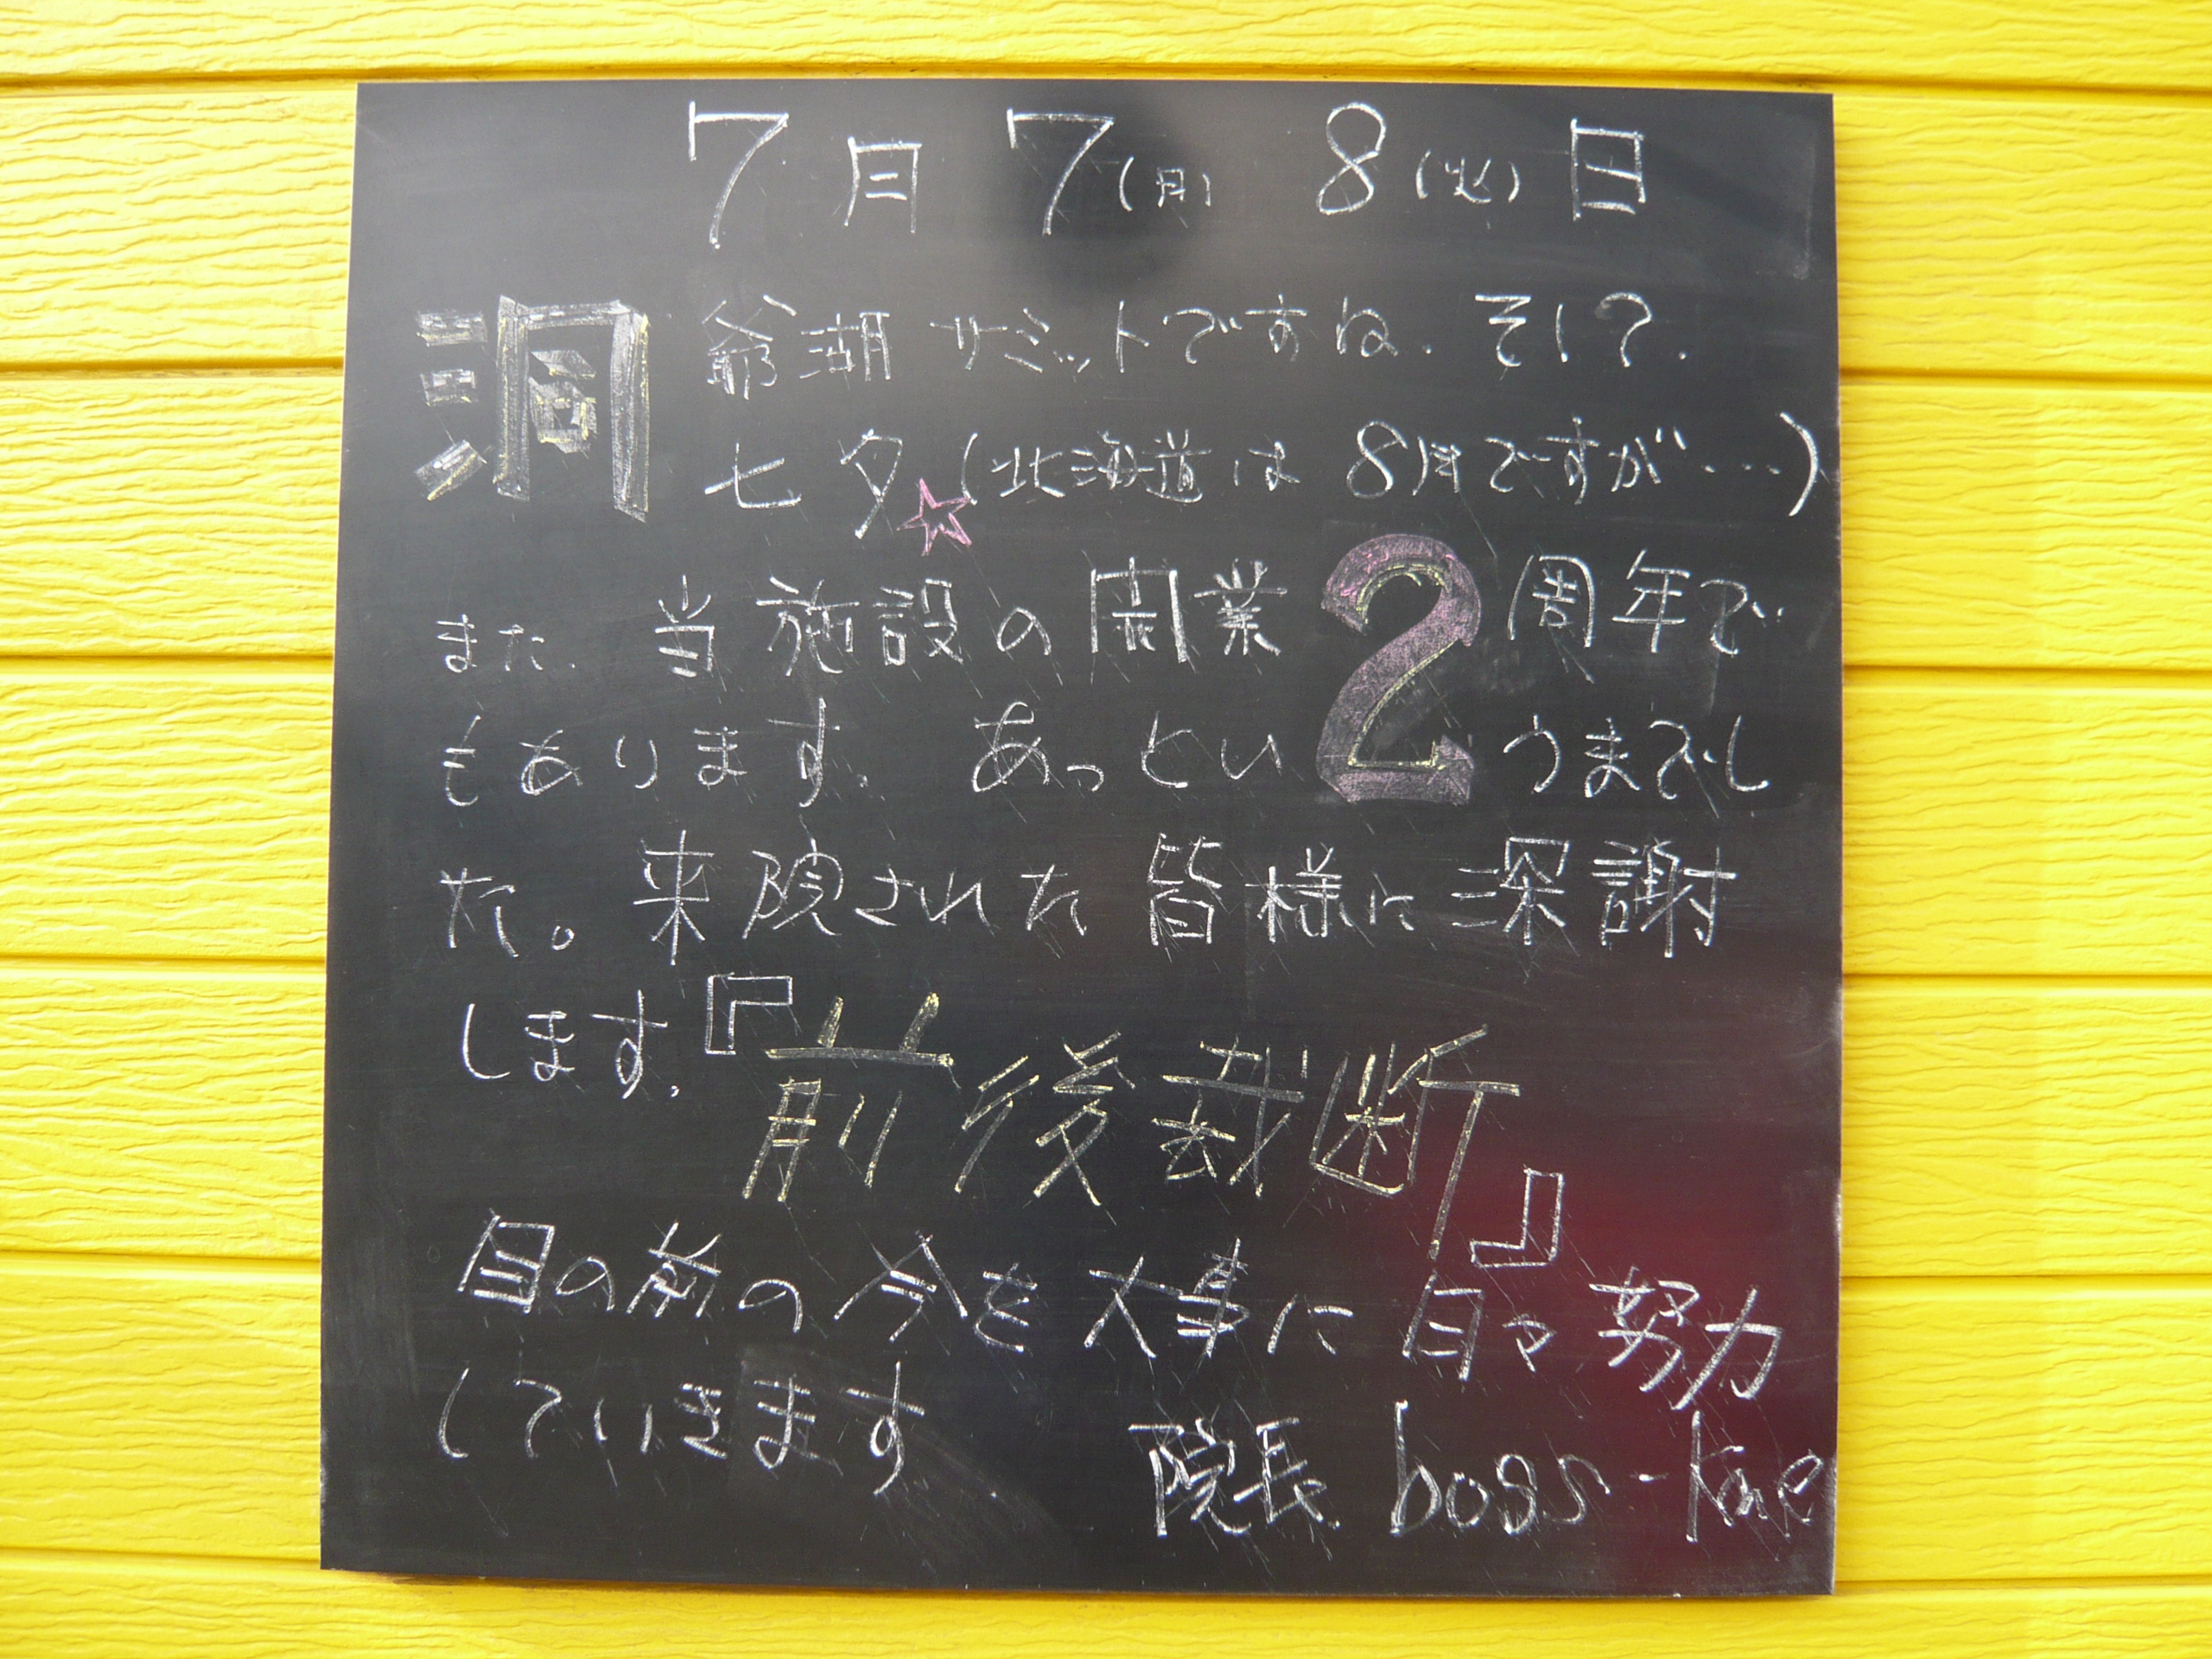 7月7(月) 8(火)日
洞爺湖サミットですね。そして、
七夕☆(北海道は8月ですが…)
また、当施設の開業2周年で
もあります。あっというまでし
た。来院された皆様に深謝
します。『前後裁断』
目の前の今を大事に日々努力
していきます。
院長 boss-kae